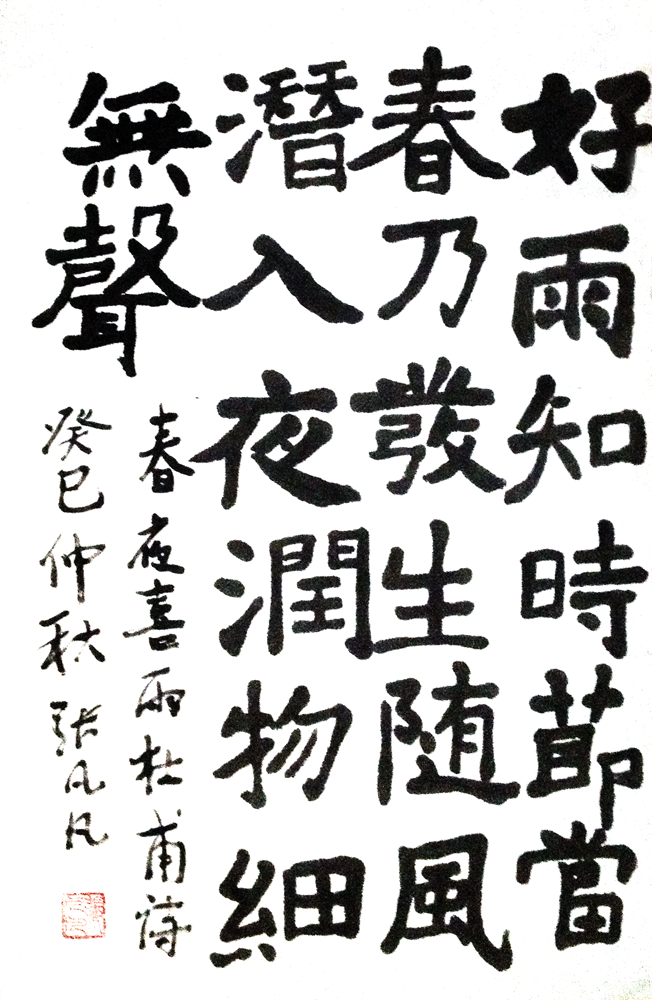 好雨知時節當
春乃發生随風
潛入夜潤物細
無聲
春夜喜雨杜甫詩
癸巳仲秋張凡凡